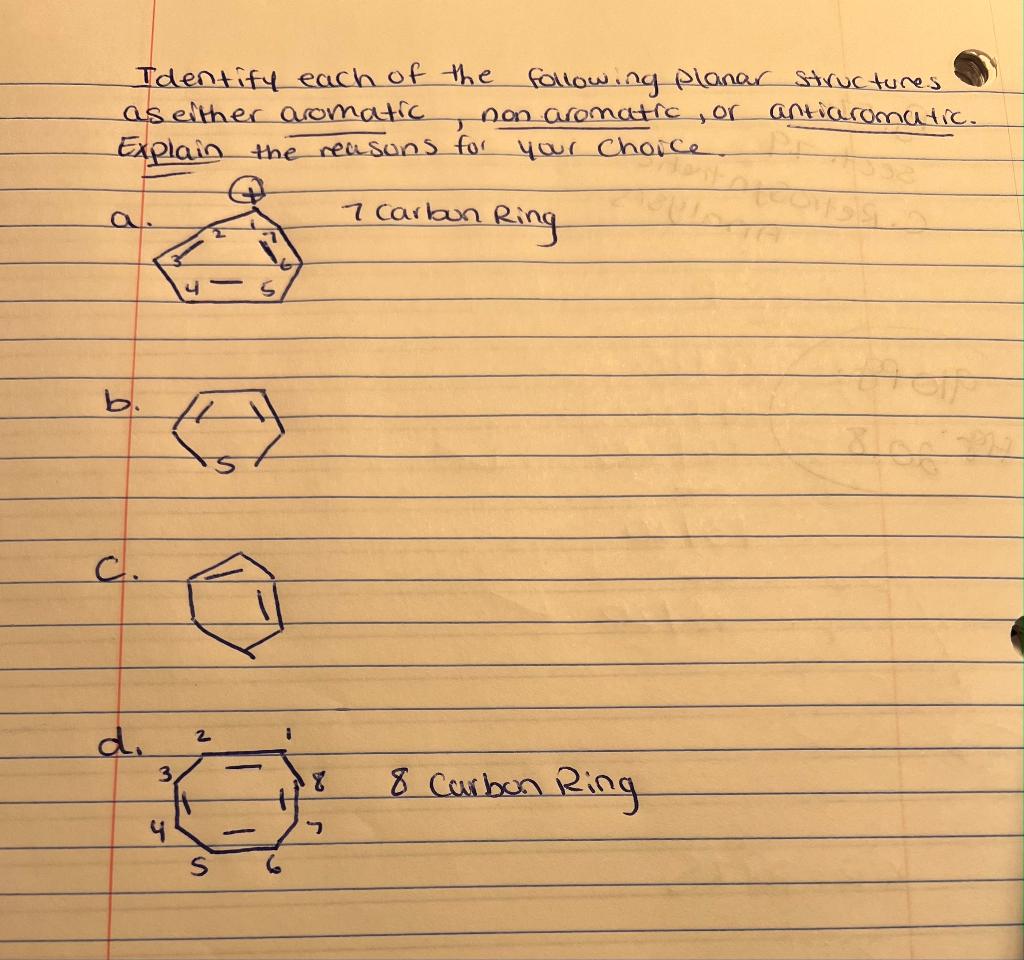 Identify each of the following planar structures
as either aromatic, non aromatic, or antiaromatic.
Explain the reasons for your choice.
a. + 7 Carbon Ring
1 2 3 4 5 6 7
b.
S
c.
d. 2 1
3 8 8 Carbon Ring
4 7
5 6